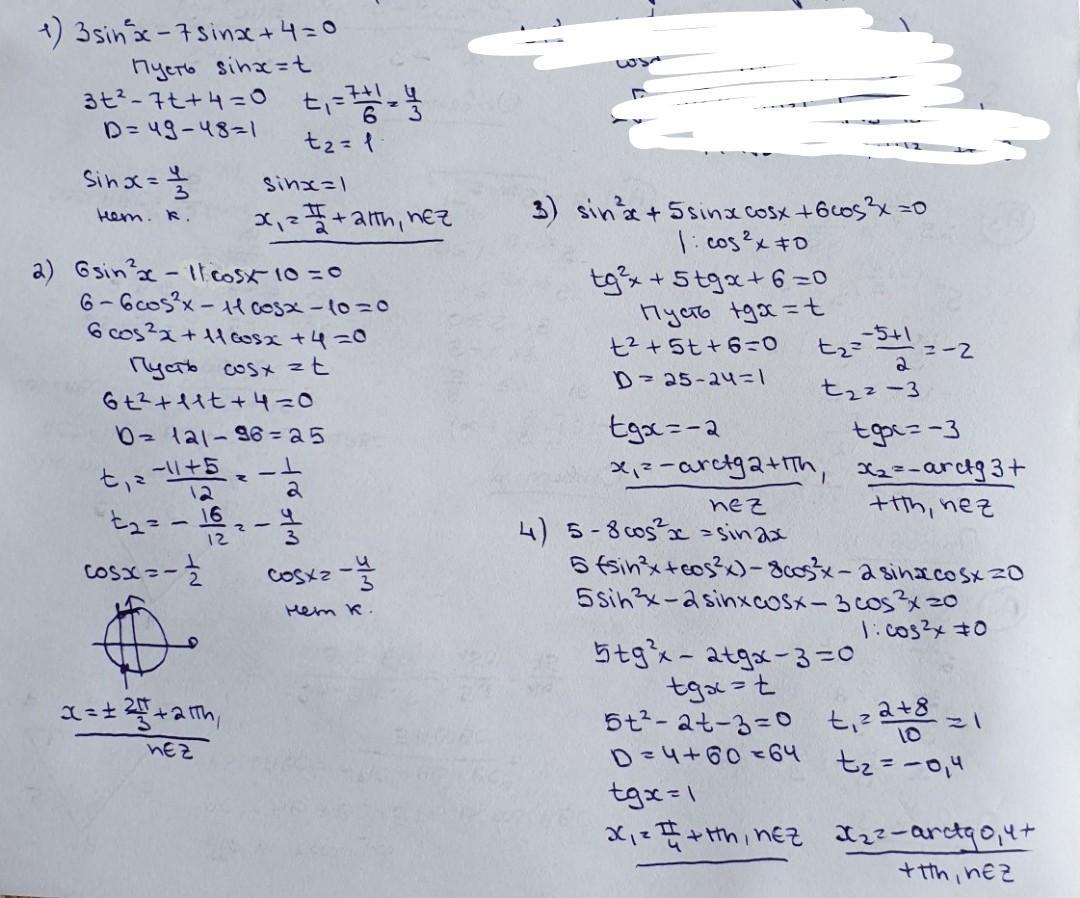 1) 3sin²x - 7sinx + 4 = 0
Пусть sinx = t
3t² - 7t + 4 = 0 t₁ = (7+1)/6 = 4/3
D = 49 - 48 = 1 t₂ = 1
sinx = 4/3 sinx = 1
нет. к. x₁ = π/2 + 2πn, n∈Z
2) 6sin²x - 11cosx - 10 = 0
6 - 6cos²x - 11cosx - 10 = 0
6cos²x + 11cosx + 4 = 0
Пусть cosx = t
6t² + 11t + 4 = 0
D = 121 - 96 = 25
t₁ = (-11+5)/12 = -1/2
t₂ = -16/12 = -4/3
cosx = -1/2 cosx = -4/3
нет к.
x = ± 2π/3 + 2πn,
n∈Z
3) sin²x + 5sinxcosx + 6cos²x = 0
| : cos²x ≠ 0
tg²x + 5tgx + 6 = 0
Пусть tgx = t
t² + 5t + 6 = 0 t₂ = (-5+1)/2 = -2
D = 25 - 24 = 1 t₂ = -3
tgx = -2 tgx = -3
x₁ = -arctg2 + πn, x₂ = -arctg3 +
n∈Z + πn, n∈Z
4) 5 - 8cos²x = sin2x
5(sin²x + cos²x) - 8cos²x - 2sinxcosx = 0
5sin²x - 2sinxcosx - 3cos²x = 0
| : cos²x ≠ 0
5tg²x - 2tgx - 3 = 0
tgx = t
5t² - 2t - 3 = 0 t₁ = (2+8)/10 = 1
D = 4 + 60 = 64 t₂ = -0,4
tgx = 1
x₁ = π/4 + πn, n∈Z x₂ = -arctg0,4 +
+ πn, n∈Z